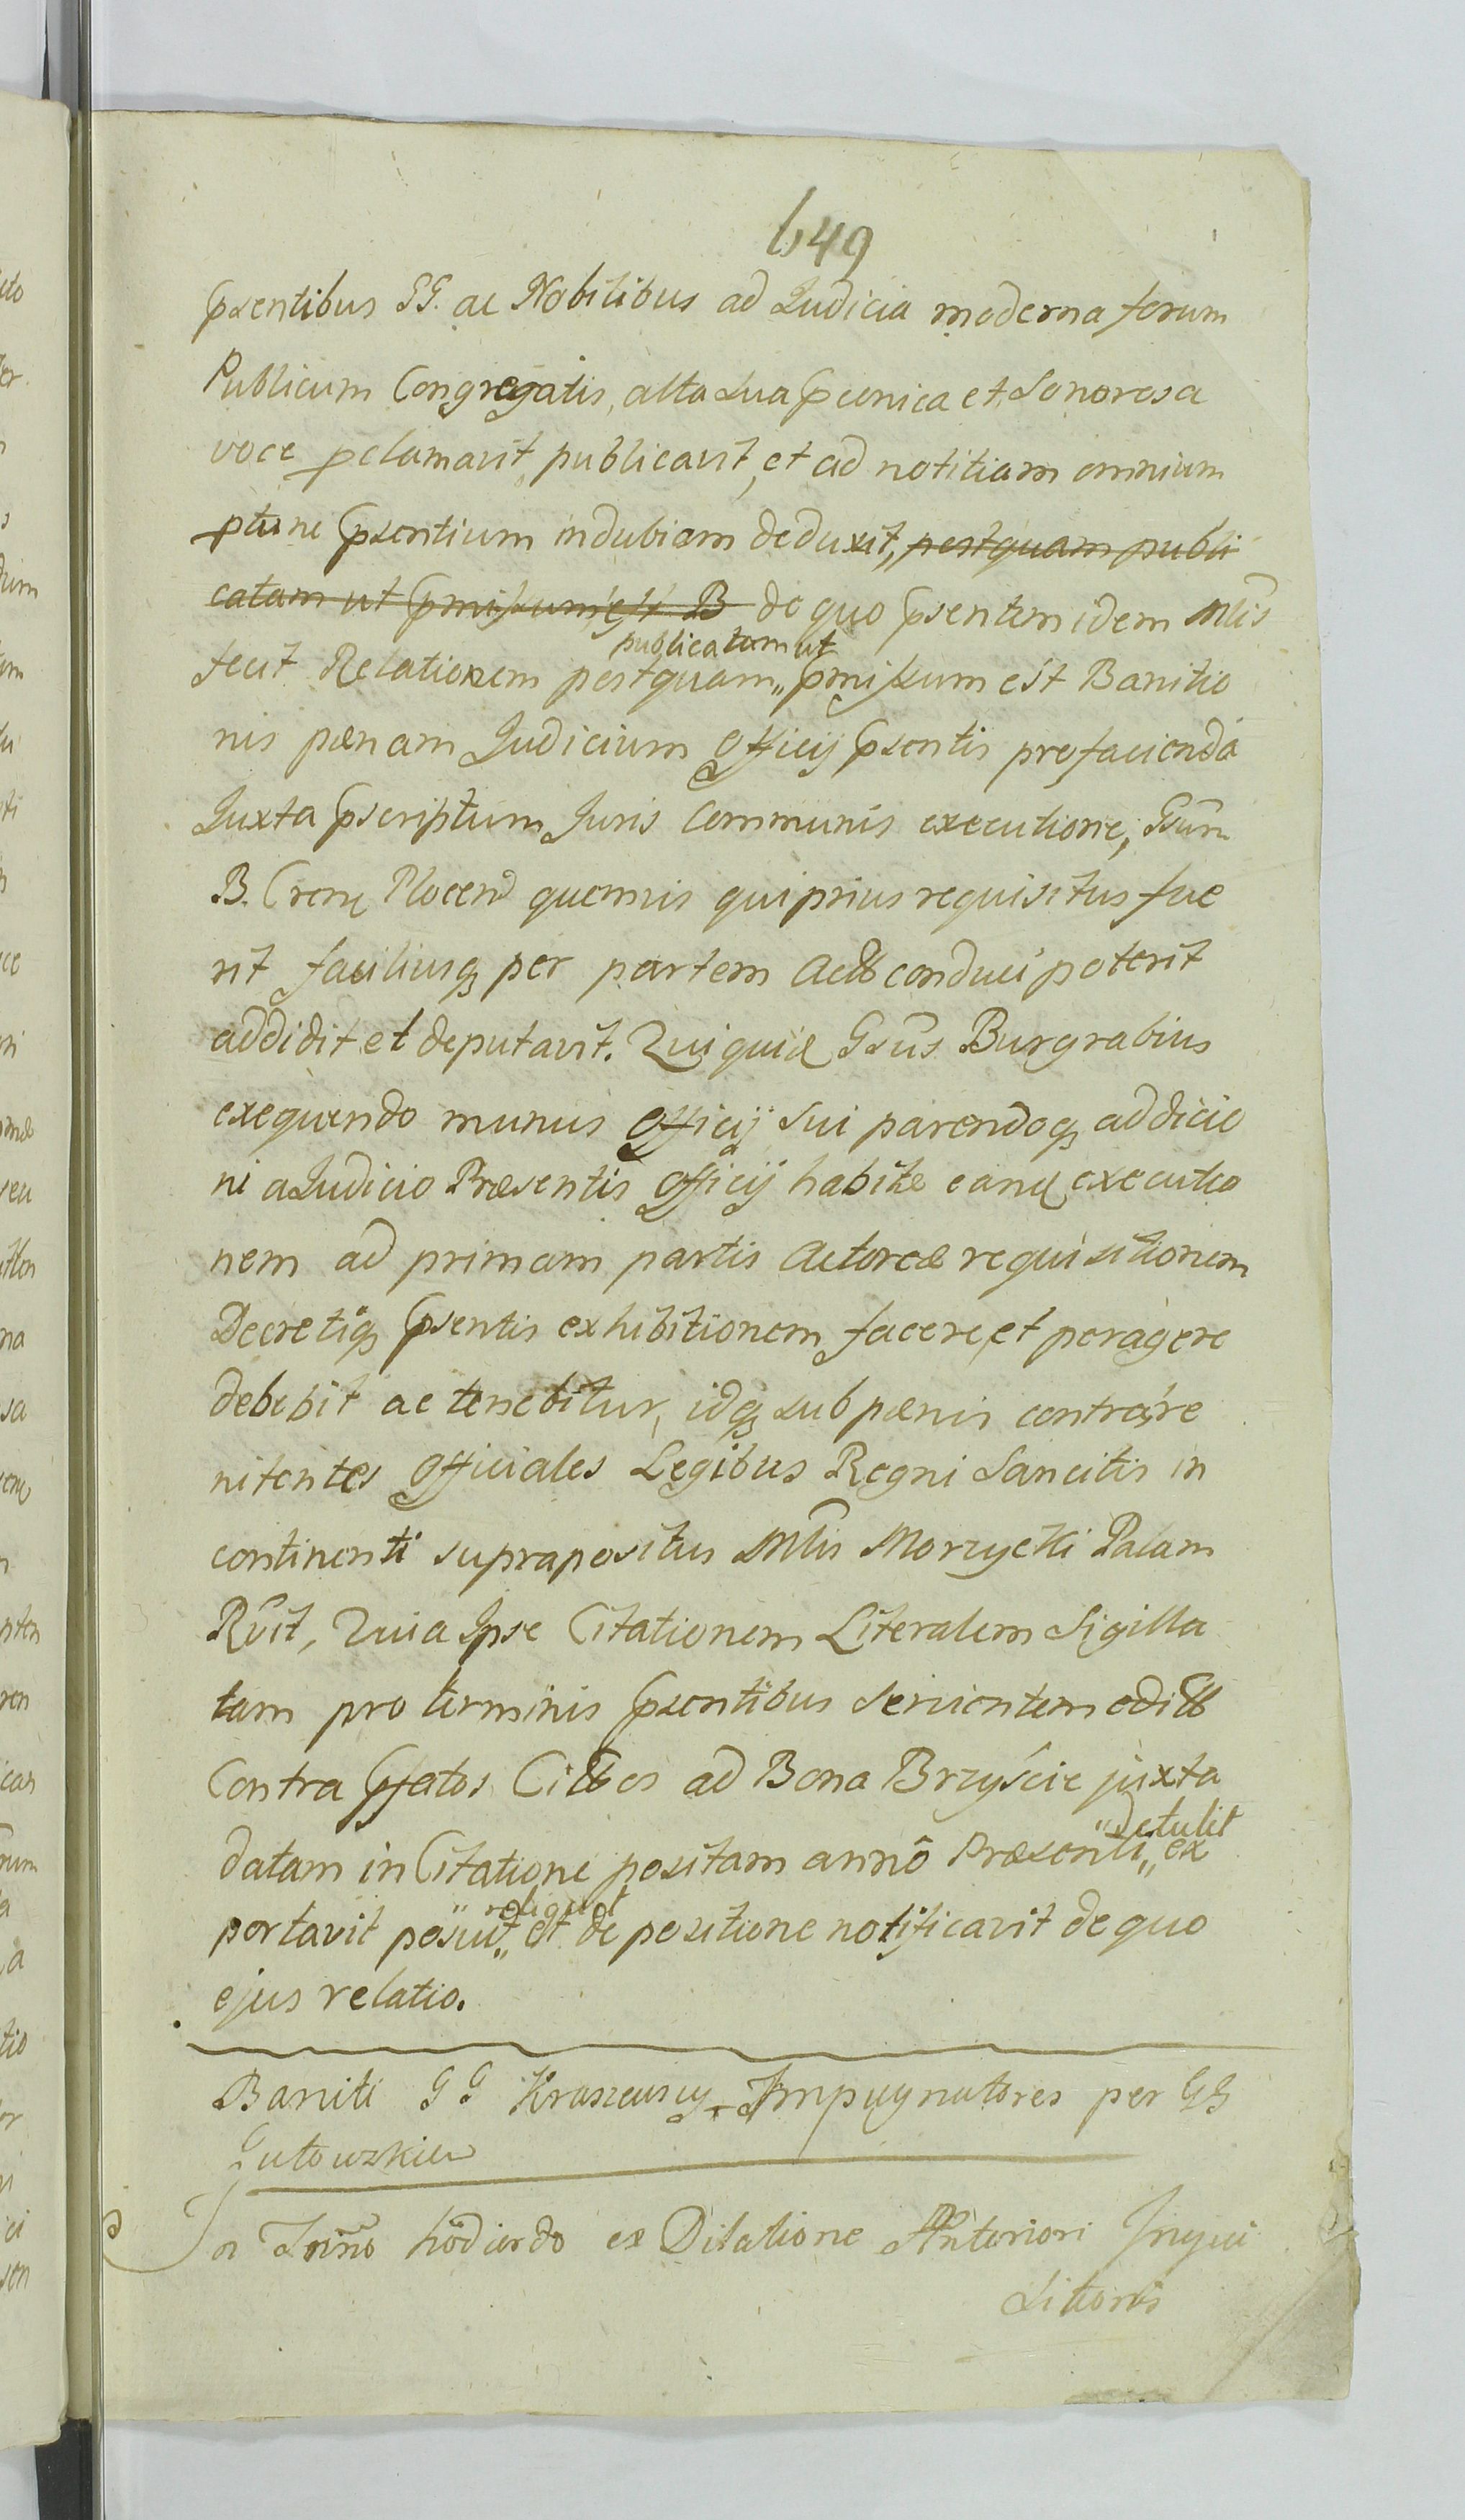 649
Psentibus GG. ac Nobilibus ad Judicia moderna forum
Publicum Congregatis, alta sua Pconica et Sonorosa
voce pclamavit, publicavit, et ad notitiam omnium
ptunc Psentium indubiam deduxit, postquam publi
catam ut Pmissum est B de quo Psentem idem Mlis
fecit Relationem postquam publicatam ut Pmissum est Banitio
nis pænam Judicium Officij Psentis pro facienda
Juxta Pscriptum Juris Communis executione, Gsum
B. Plocen quemvis qui prius requisitus fue
rit faciliusq per partem conduci poterit
addidit et deputavit. Qui quid Gsus Burgrabius
exequendo munus Officij Sui parendoq addicio
ni a Judicio Præsentis Officij habitæ eand executio
nem ad primam partis Actoreæ requisitionem
Decretiq Psentis exhibitionem facere, et peragere
debebit ac tenebitur, idq sub pænis contra re
nitentes Officiales Legibus Regni Sancitis in
continenti suprapositus Mlis Morzycki Palam
Rvit, Quia Ipse Citationem Literalem Sigilla
tam pro terminis Psentibus Servientem
Contra Pfatos ad Bona Brzyście juxta
datam in Citatione positam anno Præsenti detulit ex
portavit posuit reliquit et de positione notificavit de quo
ejus relatio.
Baniti GG Kraszewscy Impugnatores per GG
Gutowzkie
In Trino hodierdo ex Dilatione Anteriori Inqui
sitionis